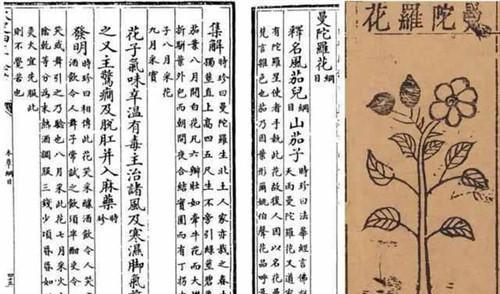 曼陀羅花
曼陀羅花綱目
釋名風茄兒綱目山茄子時珍曰法華經言佛
天雨曼陀羅花又道家
有陀羅星使者手執此花故後人因以名花
梵言雜色也茄乃因葉形爾姚伯聲花品呼
集解時珍曰曼陀羅生北土人家亦栽之春
獨莖直上高四五尺生不旁引綠莖碧
茄葉八月開白花凡六瓣狀如牽牛花而大
折駢葉外包而朝開夜合結實圓而有丁拐
子八月采花
九月采實
花子氣味辛溫有毒主治諸風及寒濕腳氣
之又主驚癇及脫肛并入麻藥時珍
發明時珍曰相傳此花笑采釀酒飲令人笑
酒飲令人舞予常試之飲須半酣更令
笑或舞引之乃驗也八月采此花七月采火
陰乾等分為末熱酒調服三錢少頃昏昏如
灸火宜先服此
則不覺苦也
本草綱目